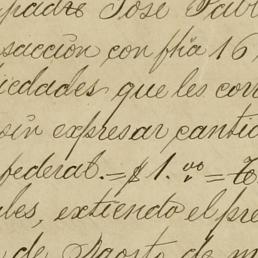 padre José Pabl
sacción con fha 16,
iedades que les corr
sin expresar cantid
federal.=$1.00=To
les, extiendo el pre
de Agosto de m